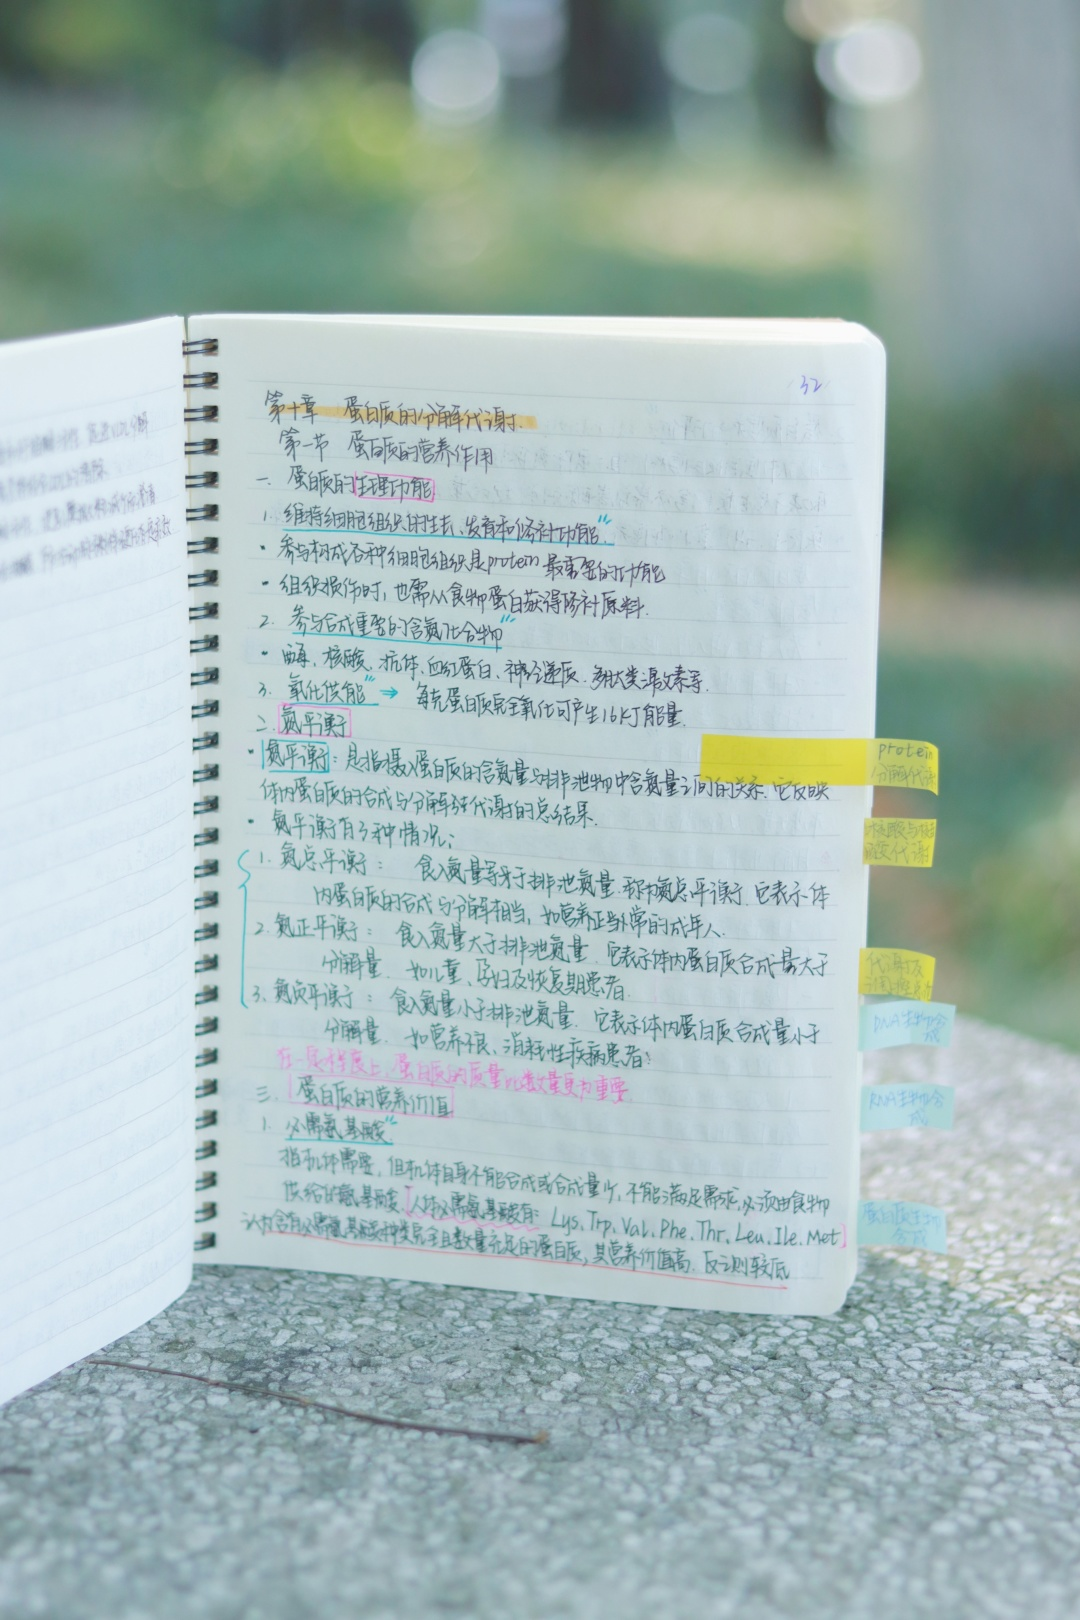 32
第十章 蛋白质的分解代谢.
第一节 蛋白质的营养作用
一. 蛋白质的生理功能
1. 维持细胞组织的生长、发育和修补功能.
· 参与构成各种细胞组织是protein最重要的功能
· 组织损伤时, 也需从食物蛋白获得修补原料.
2. 参与合成重要的含氮化合物
· 酶、核酸、抗体、血红蛋白、神经递质、多肽类激素等.
3. 氧化供能 → 每克蛋白质完全氧化可产生16KJ能量.
二. 氮平衡
· 氮平衡: 是指摄入蛋白质的含氮量与排泄物中含氮量之间的关系. 它反映
体内蛋白质的合成与分解代谢的总结果.
· 氮平衡有3种情况:
1. 氮总平衡: 食入氮量等于排泄氮量 称为氮总平衡. 它表示体
内蛋白质的合成与分解相当, 如营养正常的成年人.
2. 氮正平衡: 食入氮量大于排泄氮量. 它表示体内蛋白质合成量大于
分解量. 如儿童、孕妇及恢复期患者.
3. 氮负平衡: 食入氮量小于排泄氮量. 它表示体内蛋白质合成量小于
分解量. 如营养不良、消耗性疾病患者.
在一定程度上, 蛋白质的质量比数量更为重要
三. 蛋白质的营养价值
1. 必需氨基酸
指机体需要, 但机体自身不能合成或合成量少, 不能满足需求, 必须由食物
供给的氨基酸. [人体必需氨基酸有: Lys. Trp. Val. Phe. Thr. Leu. Ile. Met]
含有必需氨基酸种类完全且数量充足的蛋白质, 其营养价值高. 反之则较低
protein
分解代谢
核酸与核苷
酸代谢
代谢
DNA生物合
成
RNA生物合
成
蛋白质生物
合成